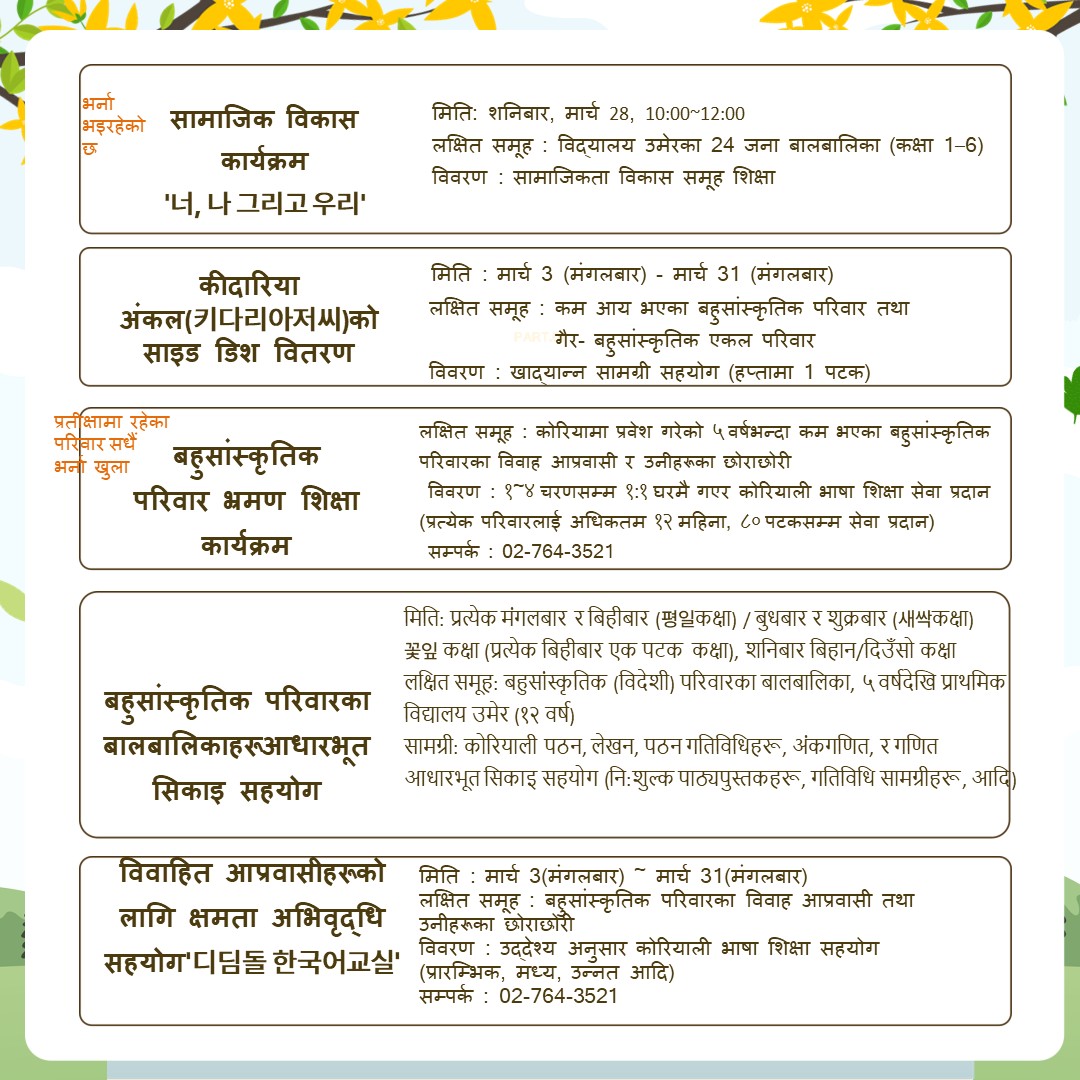 भर्ना
भइरहेको
छ
सामाजिक विकास
कार्यक्रम
'너, 나 그리고 우리'
मिति: शनिबार, मार्च 28, 10:00~12:00
लक्षित समूह : विद्यालय उमेरका 24 जना बालबालिका (कक्षा 1–6)
विवरण : सामाजिकता विकास समूह शिक्षा
कीदारिया
अंकल(키다리아저씨)को
साइड डिश वितरण
मिति : मार्च 3 (मंगलबार) - मार्च 31 (मंगलबार)
लक्षित समूह : कम आय भएका बहुसांस्कृतिक परिवार तथा
गैर- बहुसांस्कृतिक एकल परिवार
विवरण : खाद्यान्न सामग्री सहयोग (हप्तामा 1 पटक)
प्रतीक्षामा रहेका
परिवार सधैं
भर्ना खुला
बहुसांस्कृतिक
परिवार भ्रमण शिक्षा
कार्यक्रम
लक्षित समूह : कोरियामा प्रवेश गरेको ५ वर्षभन्दा कम भएका बहुसांस्कृतिक
परिवारका विवाह आप्रवासी र उनीहरूका छोराछोरी
विवरण : १~४ चरणसम्म १:१ घरमै गएर कोरियाली भाषा शिक्षा सेवा प्रदान
(प्रत्येक परिवारलाई अधिकतम १२ महिना, ८० पटकसम्म सेवा प्रदान)
सम्पर्क : 02-764-3521
बहुसांस्कृतिक परिवारका
बालबालिकाहरूआधारभूत
सिकाइ सहयोग
मिति: प्रत्येक मंगलबार र बिहीबार (평일कक्षा) / बुधबार र शुक्रबार (새싹कक्षा)
꽃잎 कक्षा (प्रत्येक बिहीबार एक पटक कक्षा), शनिबार बिहान/दिउँसो कक्षा
लक्षित समूह: बहुसांस्कृतिक (विदेशी) परिवारका बालबालिका, ५ वर्षदेखि प्राथमिक
विद्यालय उमेर (१२ वर्ष)
सामग्री: कोरियाली पठन, लेखन, पठन गतिविधिहरू, अंकगणित, र गणित
आधारभूत सिकाइ सहयोग (नि:शुल्क पाठ्यपुस्तकहरू, गतिविधि सामग्रीहरू, आदि)
विवाहित आप्रवासीहरूको
लागि क्षमता अभिवृद्धि
सहयोग'디딤돌 한국어교실'
मिति : मार्च 3(मंगलबार) ~ मार्च 31(मंगलबार)
लक्षित समूह : बहुसांस्कृतिक परिवारका विवाह आप्रवासी तथा
उनीहरूका छोराछोरी
विवरण : उद्देश्य अनुसार कोरियाली भाषा शिक्षा सहयोग
(प्रारम्भिक, मध्य, उन्नत आदि)
सम्पर्क : 02-764-3521